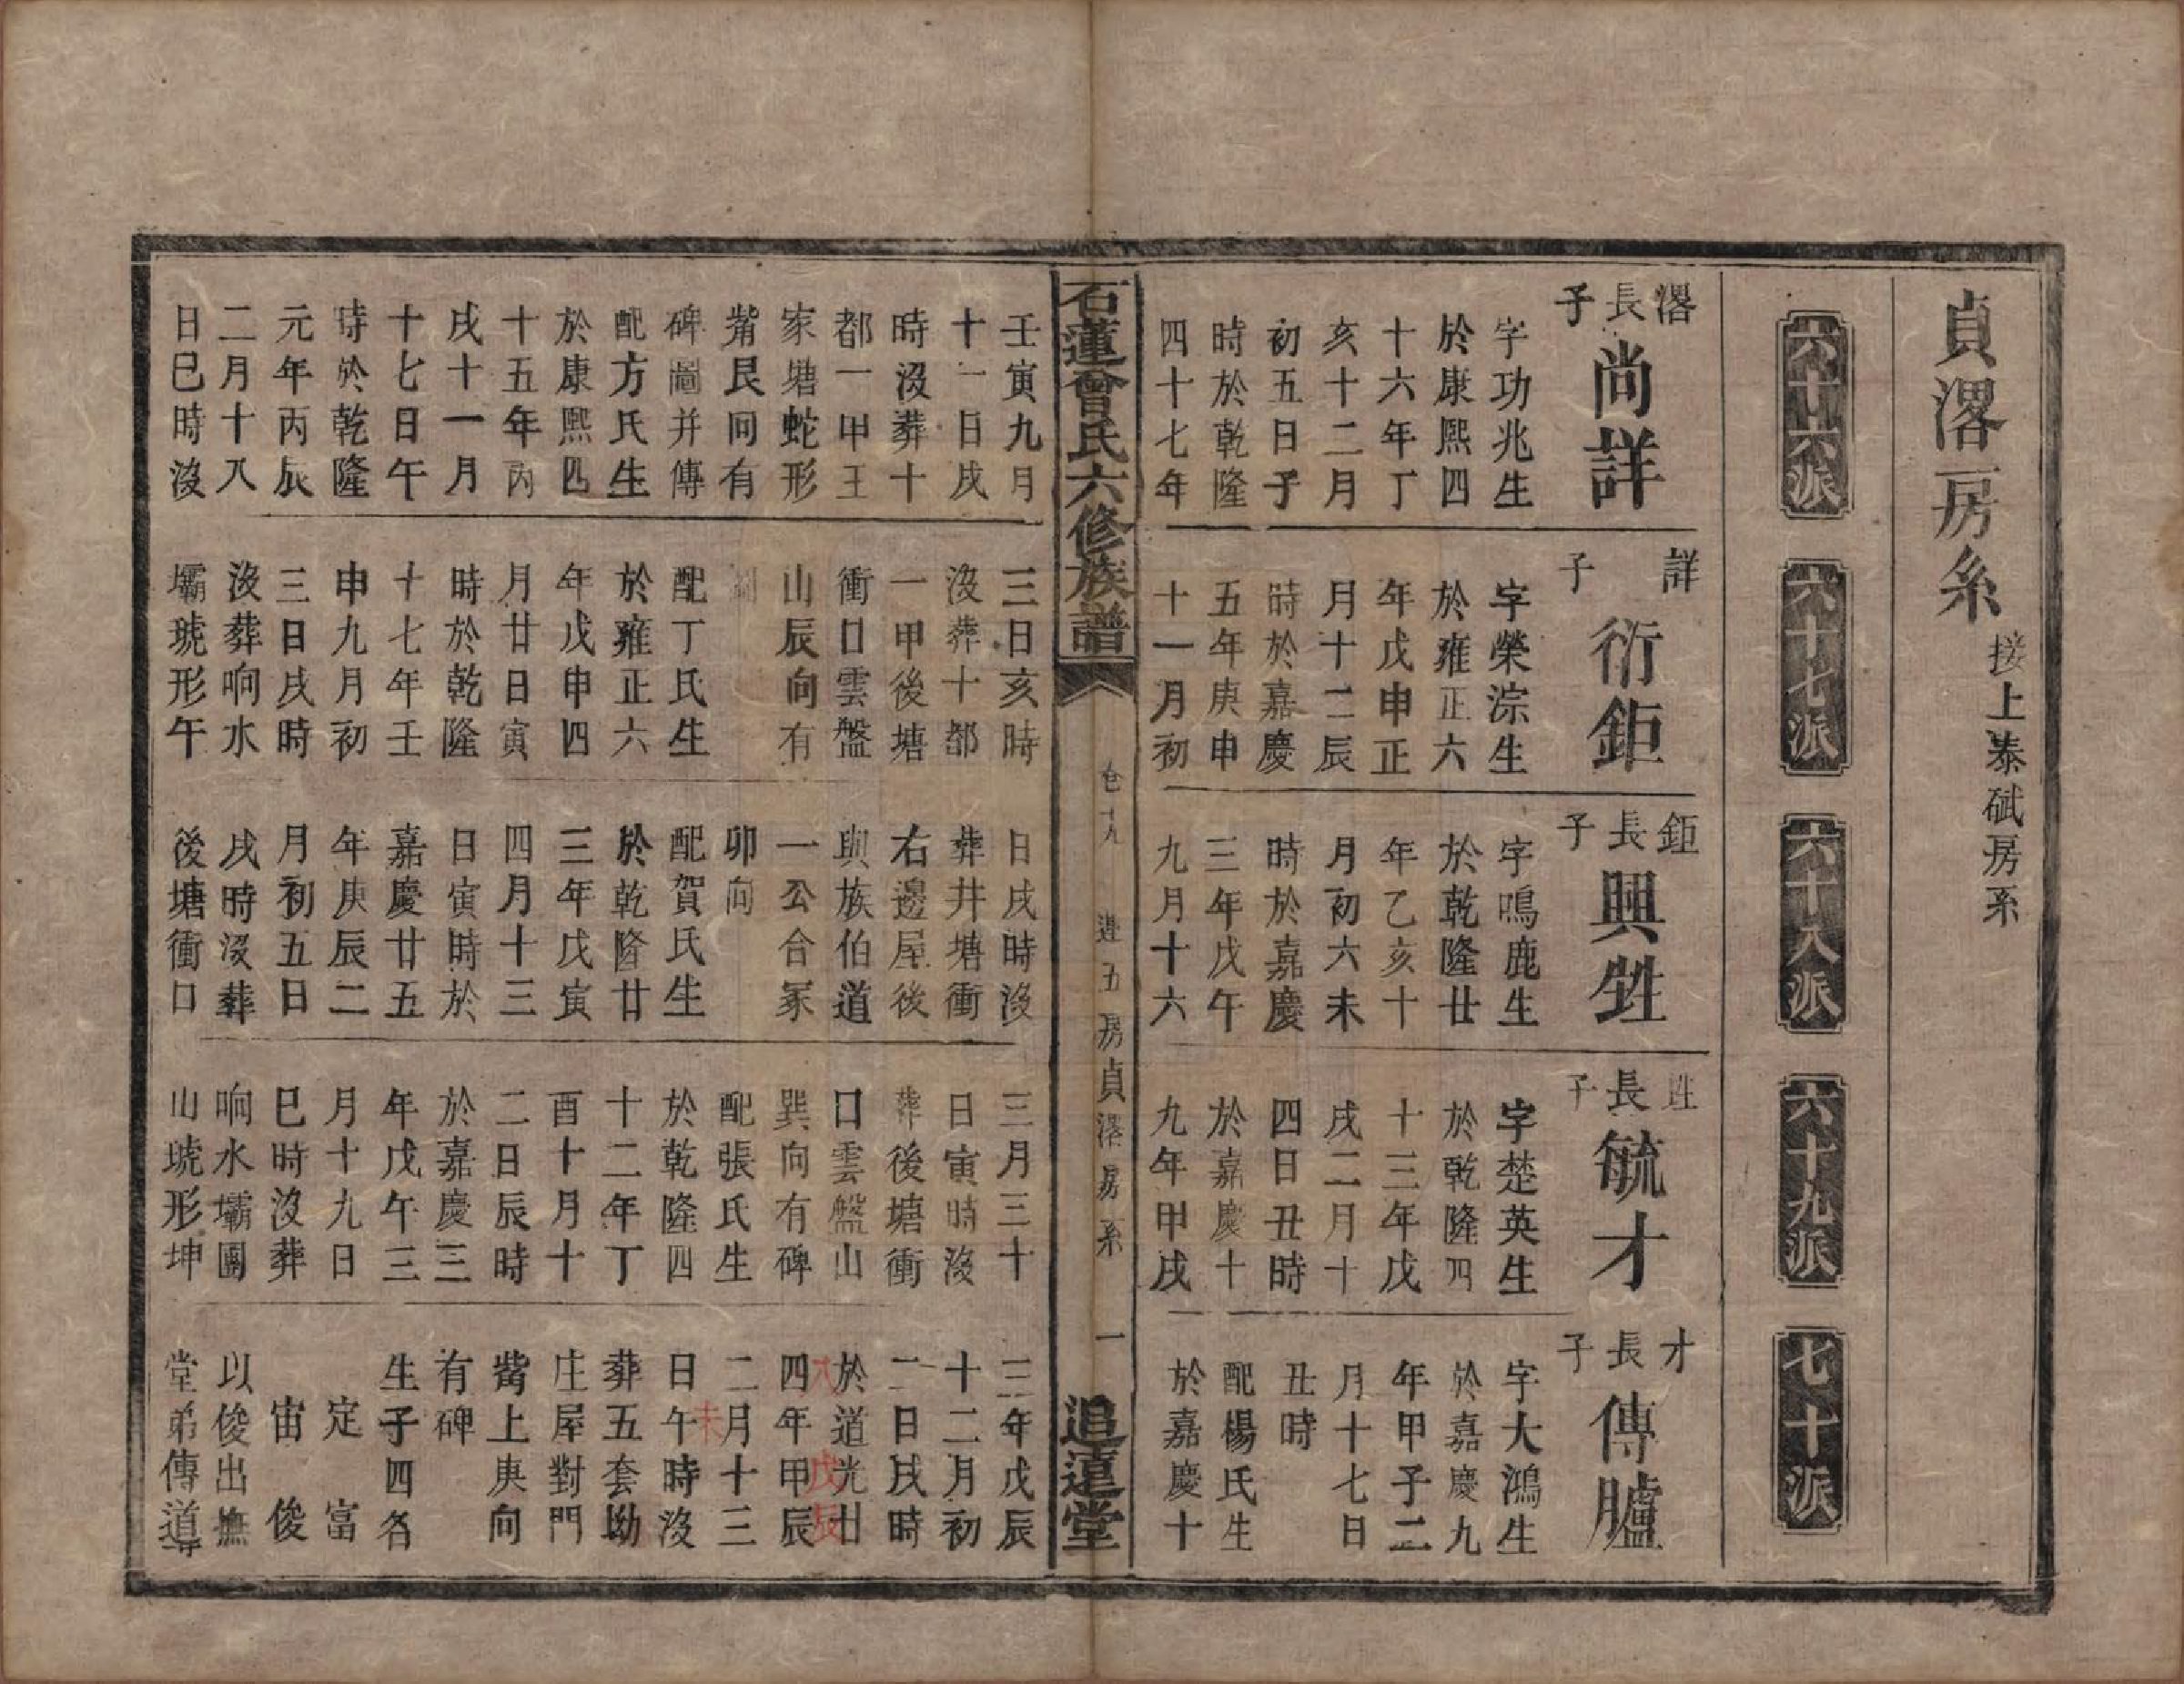 貞濖房系 接上泰碔房系
六十六派
六十七派
六十八派
六十九派
七十派
濖長子
尚詳
字功兆生
於康熙四
十六年丁
亥十二月
初五日子
時於乾隆
四十七年
詳子
衍鉅
字榮淙生
於雍正六
年戊申正
月十二辰
時於嘉慶
五年庚申
十一月初
鉅長子
興甡
字鳴鹿生
於乾隆廿
年乙亥十
月初六未
時於嘉慶
三年戊午
九月十六
甡長子
毓才
字楚英生
於乾隆四
十三年戊
戌二月十
四日丑時
於嘉慶十
九年甲戌
才長子
傳臚
字大鴻生
於嘉慶九
年甲子二
月十七日
丑時
配楊氏生
於嘉慶十
石蓮曾氏六修族譜
卷十九 進五房貞濖房系 一
追遠堂
壬寅九月
十一日戌
時沒葬十
都一甲王
家塘蛇形
觜艮向有
碑圖并傳
配方氏生
於康熙四
十五年丙
戌十一月
十七日午
時於乾隆
元年丙辰
二月十八
日巳時沒
三日亥時
沒葬十都
一甲後塘
衝口雲盤
山辰向有
配丁氏生
於雍正六
年戊申四
月廿日寅
時於乾隆
十七年壬
申九月初
三日戌時
沒葬响水
壩琥形午
日戌時沒
葬井塘衝
右邊屋後
與族伯道
一公合冢
卯向
配賀氏生
於乾隆廿
三年戊寅
四月十三
日寅時於
嘉慶廿五
年庚辰二
月初五日
戌時沒葬
後塘衝口
三月三十
日寅時沒
葬後塘衝
口雲盤山
巽向有碑
配張氏生
於乾隆四
十二年丁
酉十月十
二日辰時
於嘉慶三
年戊午三
月十九日
巳時沒葬
响水壩團
山琥形坤
三年戊辰
十二月初
二日戌時
於道光廿
四年甲辰
二月十三
日午時沒
葬五套坳
庄屋對門
觜上庚向
有碑
生子四名
定富
宙俊
以俊出撫
堂弟傳道
大戊辰
未